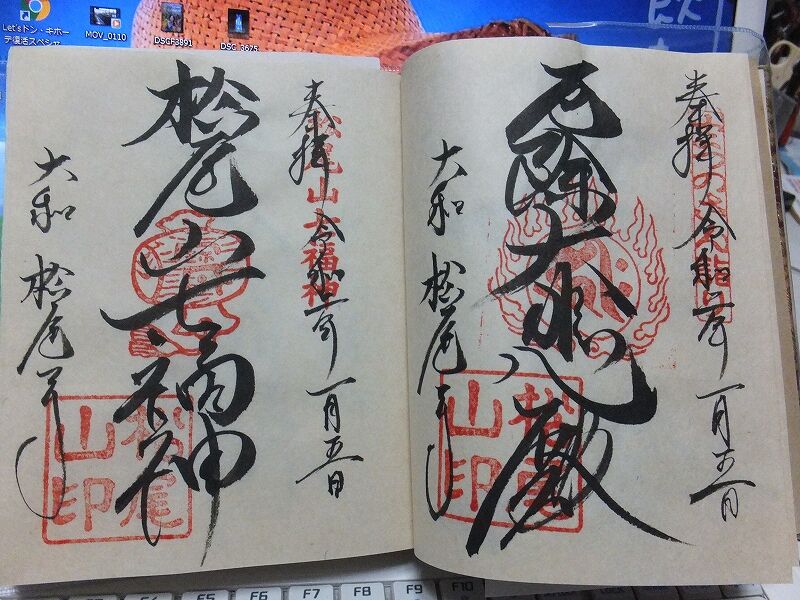 Let'sドン・キホー
テ復活スペシャ...
MOV_0110
DSCF3891
DSC_3675
奉拝 令和二年 一月五日
厄除大悲殿
大和 松尾寺
松尾山印
奉拝 令和二年 一月五日
松尾山七福神
松尾山七福神
大和 松尾寺
松尾山印
F5 F6 F7 F8 F9 F10